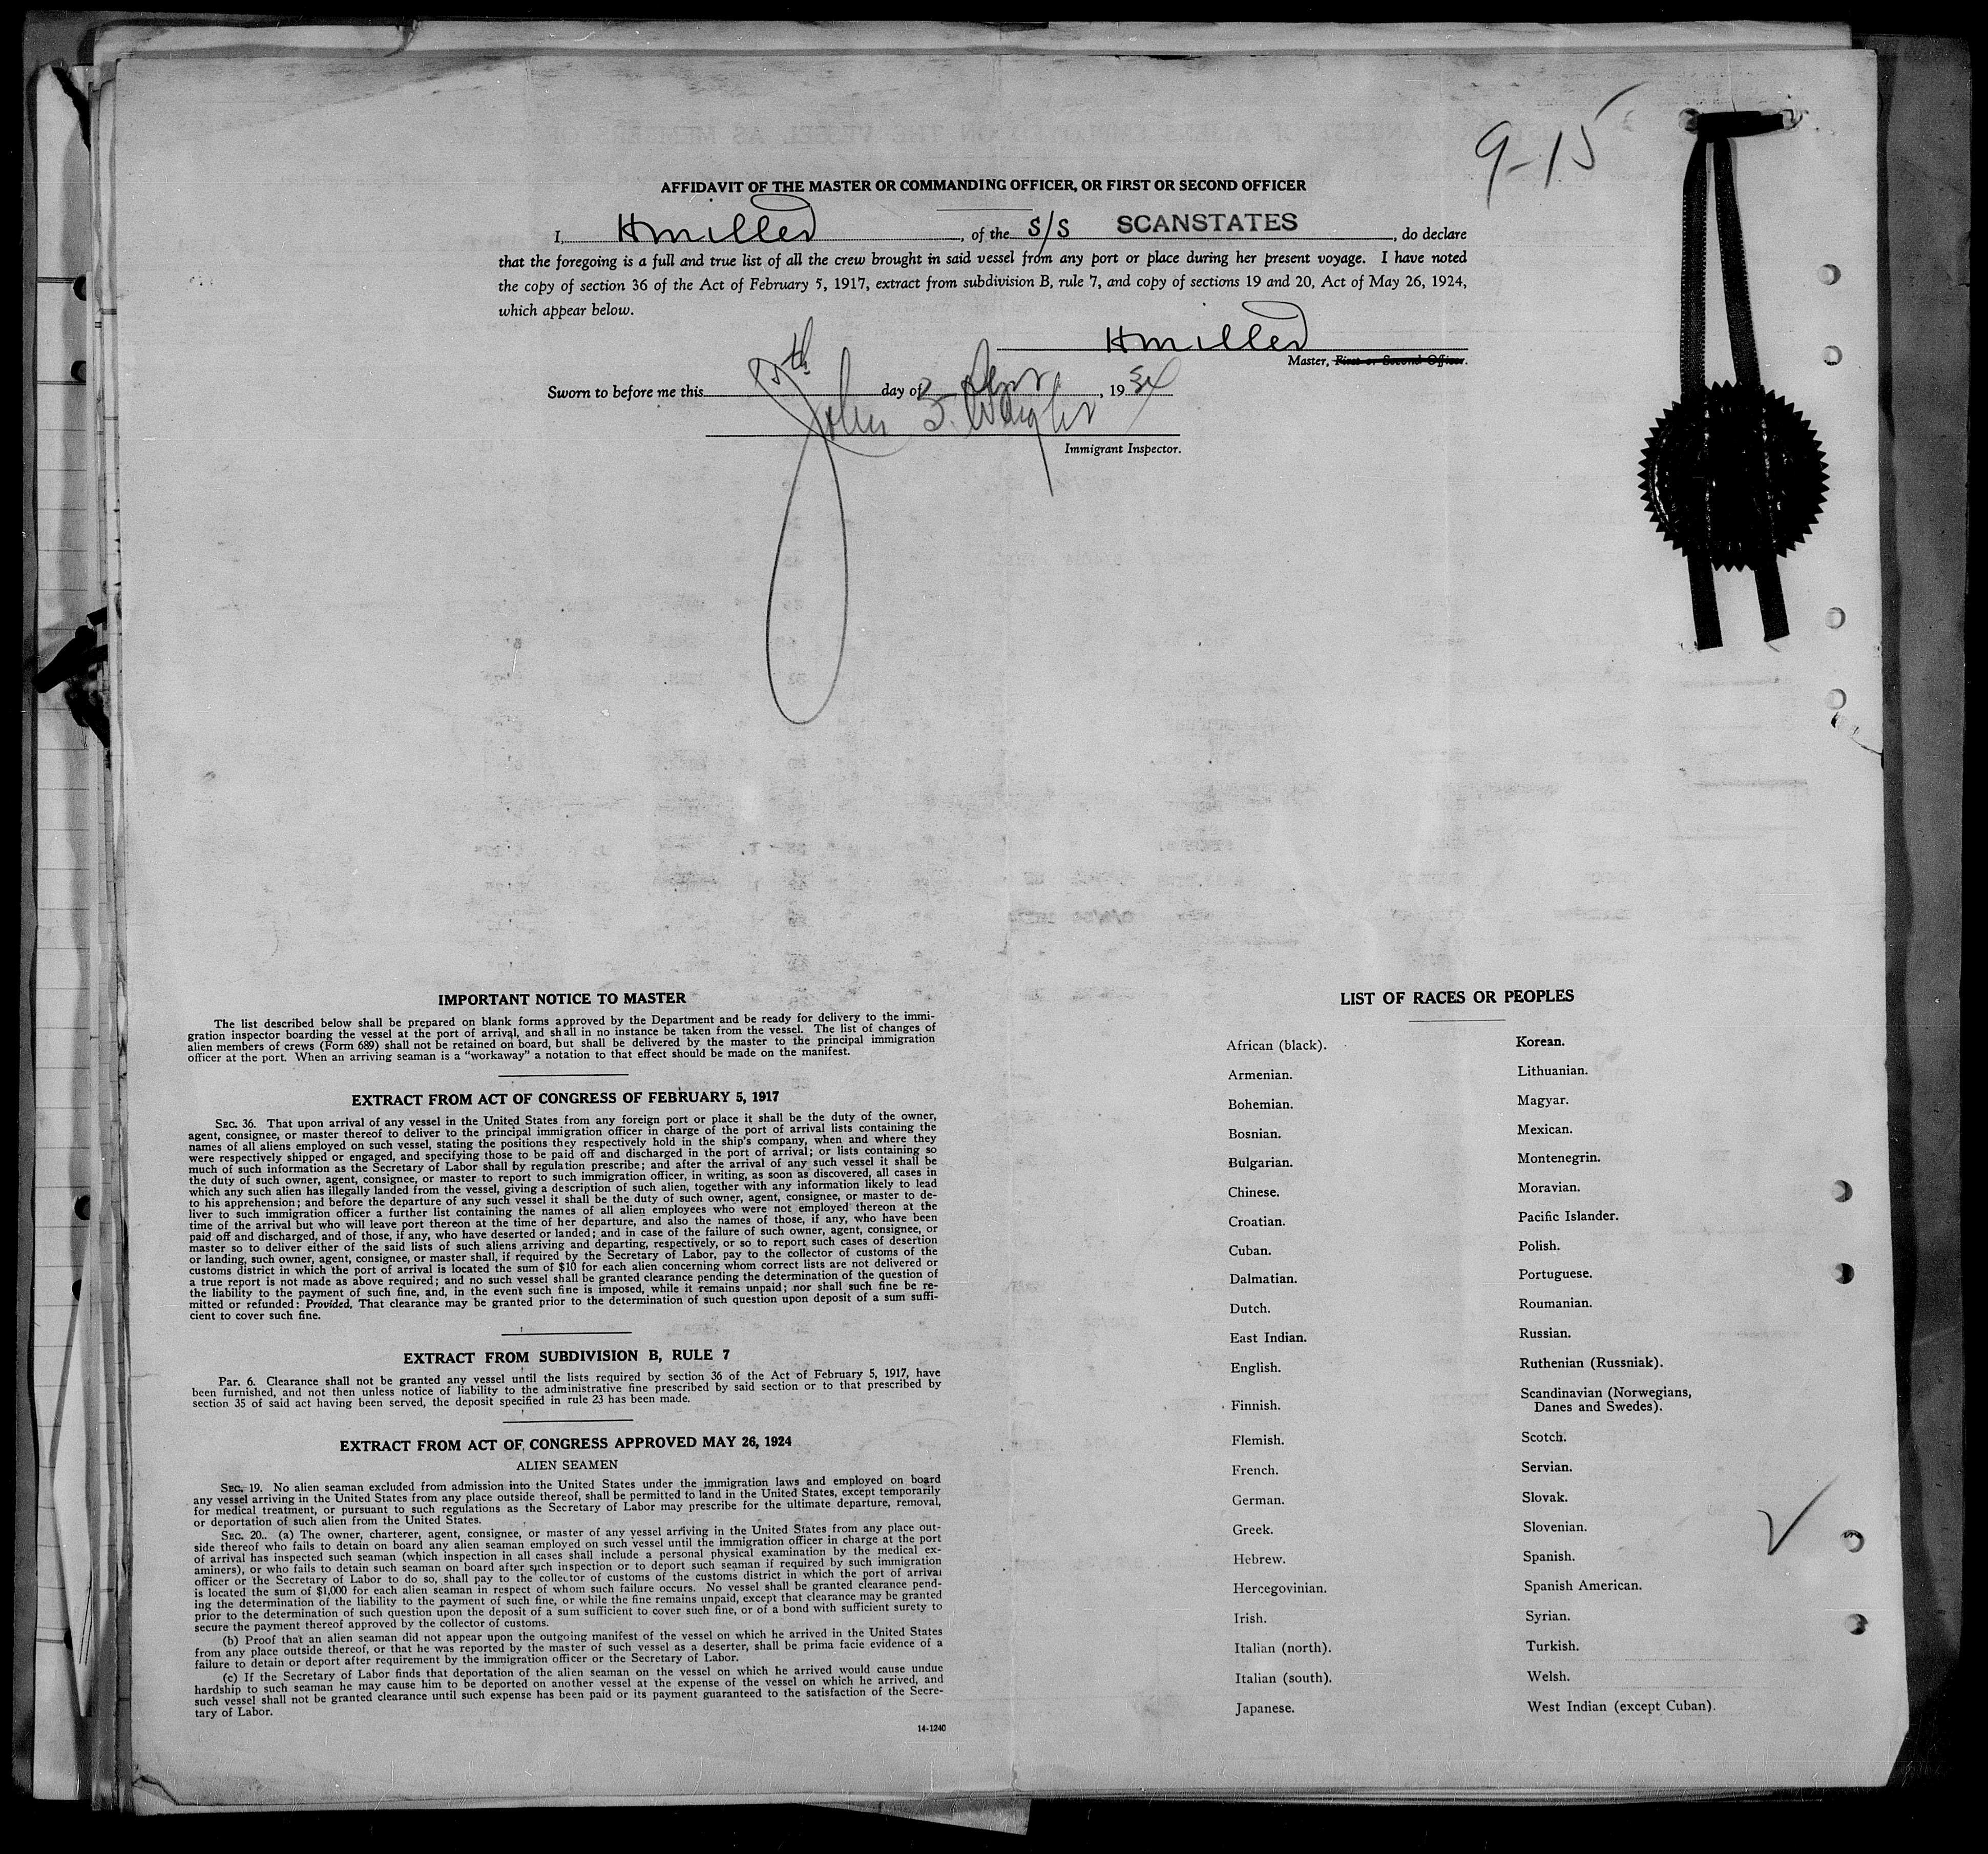 9-15
AFFIDAVIT OF THE MASTER OR COMMANDING OFFICER, OR FIRST OR SECOND OFFICER
I, HMiller, of the S/S SCANSTATES, do declare
that the foregoing is a full and true list of all the crew brought in said vessel from any port or place during her present voyage. I have noted
the copy of section 36 of the Act of February 5, 1917, extract from subdivision B, rule 7, and copy of sections 19 and 20, Act of May 26, 1924,
which appear below.
HMiller
Master, First or Second Officer.
Sworn to before me this day of , 19
John
Immigrant Inspector.
IMPORTANT NOTICE TO MASTER
The list described below shall be prepared on blank forms approved by the Department and be ready for delivery to the immi-
gration inspector boarding the vessel at the port of arrival, and shall in no instance be taken from the vessel. The list of changes of
alien members of crews (Form 689) shall not be retained on board, but shall be delivered by the master to the principal immigration
officer at the port. When an arriving seaman is a "workaway" a notation to that effect should be made on the manifest.
EXTRACT FROM ACT OF CONGRESS OF FEBRUARY 5, 1917
SEC. 36. That upon arrival of any vessel in the United States from any foreign port or place it shall be the duty of the owner,
agent, consignee, or master thereof to deliver to the principal immigration officer in charge of the port of arrival lists containing the
names of all aliens employed on such vessel, stating the positions they respectively hold in the ship's company, when and where they
were respectively shipped or engaged, and specifying those to be paid off and discharged in the port of arrival; or lists containing so
much of such information as the Secretary of Labor shall by regulation prescribe; and after the arrival of any such vessel it shall be
the duty of such owner, agent, consignee, or master to report to such immigration officer, in writing, as soon as discovered, all cases in
which any such alien has illegally landed from the vessel, giving a description of such alien, together with any information likely to lead
to his apprehension; and before the departure of any such vessel it shall be the duty of such owner, agent, consignee, or master to de-
liver to such immigration officer a further list containing the names of all alien employees who were not employed thereon at the
time of the arrival but who will leave port thereon at the time of her departure, and also the names of those, if any, who have been
paid off and discharged, and of those, if any, who have deserted or landed; and in case of the failure of such owner, agent, consignee, or
master so to deliver either of the said lists of such aliens arriving and departing, respectively, or so to report such cases of desertion
or landing, such owner, agent, consignee, or master shall, if required by the Secretary of Labor, pay to the collector of customs of the
customs district in which the port of arrival is located the sum of $10 for each alien concerning whom correct lists are not delivered or
a true report is not made as above required; and no such vessel shall be granted clearance pending the determination of the question of
the liability to the payment of such fine, and, in the event such fine is imposed, while it remains unpaid; nor shall such fine be re-
mitted or refunded: Provided, That clearance may be granted prior to the determination of such question upon deposit of a sum suffi-
cient to cover such fine.
EXTRACT FROM SUBDIVISION B, RULE 7
Par. 6. Clearance shall not be granted any vessel until the lists required by section 36 of the Act of February 5, 1917, have
been furnished, and not then unless notice of liability to the administrative fine prescribed by said section or to that prescribed by
section 35 of said act having been served, the deposit specified in rule 23 has been made.
EXTRACT FROM ACT OF CONGRESS APPROVED MAY 26, 1924
ALIEN SEAMEN
SEC. 19. No alien seaman excluded from admission into the United States under the immigration laws and employed on board
any vessel arriving in the United States from any place outside thereof, shall be permitted to land in the United States, except temporarily
for medical treatment, or pursuant to such regulations as the Secretary of Labor may prescribe for the ultimate departure, removal,
or deportation of such alien from the United States.
SEC. 20. (a) The owner, charterer, agent, consignee, or master of any vessel arriving in the United States from any place out-
side thereof who fails to detain on board any alien seaman employed on such vessel until the immigration officer in charge at the port
of arrival has inspected such seaman (which inspection in all cases shall include a personal physical examination by the medical ex-
aminers), or who fails to detain such seaman on board after such inspection or to deport such seaman if required by such immigration
officer or the Secretary of Labor to do so, shall pay to the collector of customs of the customs district in which the port of arrival
is located the sum of $1,000 for each alien seaman in respect of whom such failure occurs. No vessel shall be granted clearance pend-
ing the determination of the liability to the payment of such fine, or while the fine remains unpaid, except that clearance may be granted
prior to the determination of such question upon the deposit of a sum sufficient to cover such fine, or of a bond with sufficient surety to
secure the payment thereof approved by the collector of customs.
(b) Proof that an alien seaman did not appear upon the outgoing manifest of the vessel on which he arrived in the United States
from any place outside thereof, or that he was reported by the master of such vessel as a deserter, shall be prima facie evidence of a
failure to detain or deport after requirement by the immigration officer or the Secretary of Labor.
(c) If the Secretary of Labor finds that deportation of the alien seaman on the vessel on which he arrived would cause undue
hardship to such seaman he may cause him to be deported on another vessel at the expense of the vessel on which he arrived, and
such vessel shall not be granted clearance until such expense has been paid or its payment guaranteed to the satisfaction of the Secre-
tary of Labor.
14-1240
LIST OF RACES OR PEOPLES
African (black).
Armenian.
Bohemian.
Bosnian.
Bulgarian.
Chinese.
Croatian.
Cuban.
Dalmatian.
Dutch.
East Indian.
English.
Finnish.
Flemish.
French.
German.
Greek.
Hebrew.
Hercegovinian.
Irish.
Italian (north).
Italian (south).
Japanese.
Korean.
Lithuanian.
Magyar.
Mexican.
Montenegrin.
Moravian.
Pacific Islander.
Polish.
Portuguese.
Roumanian.
Russian.
Ruthenian (Russniak).
Scandinavian (Norwegians,
Danes and Swedes).
Scotch.
Servian.
Slovak.
Slovenian.
Spanish.
Spanish American.
Syrian.
Turkish.
Welsh.
West Indian (except Cuban).